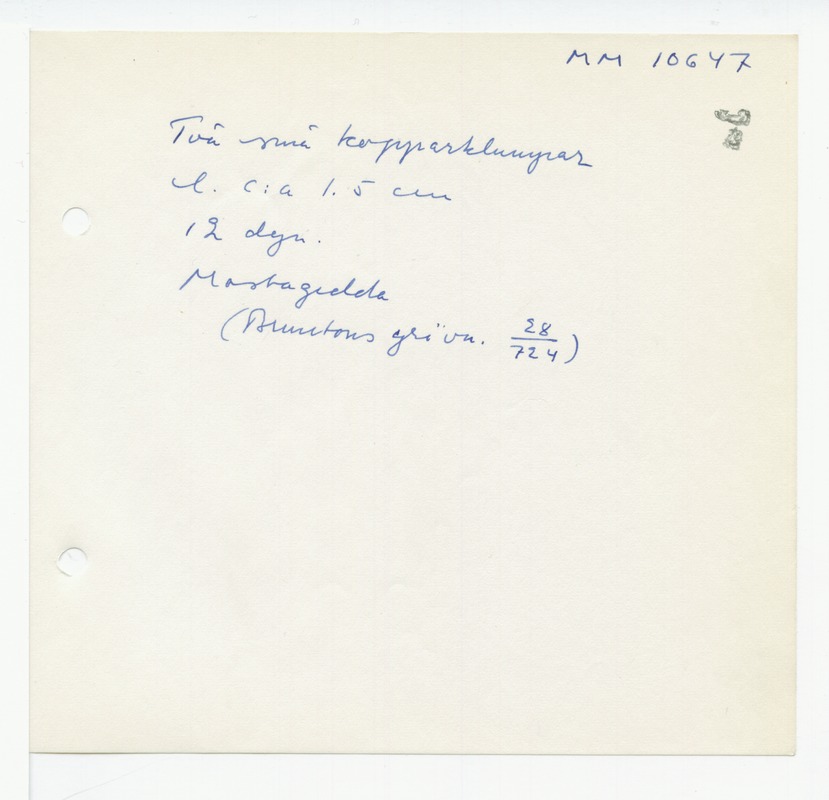 MM 10647
Två små kopparklumpar
l. c:a 1.5 cm
12 dyn.
Mostagedda
(Bruntons grävn. 28/724)